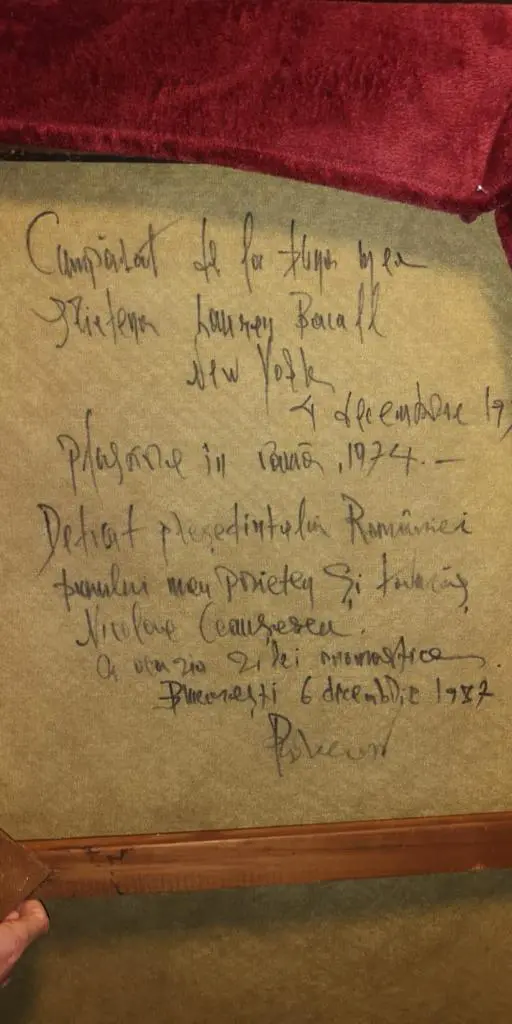 Cumpărat de la buna mea
Prietena Lauren Bacall
New York
4 decembrie 19
în ramă, 1974. —
Dedicat președintelui României
bunului meu prieten și
Nicolae Ceaușescu.
Cu ocazia zilei onomastice.
București 6 decembrie 1987